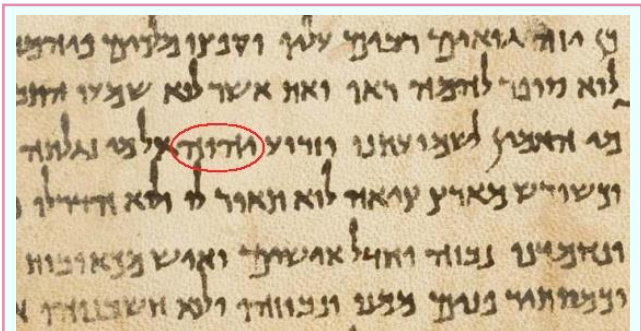 כן יזה גואים רבים עליו וקפצו מלכים
לוא סופר להמה ראו ואת אשר לוא שמעו
מי האמין לשמועתנו וזרוע יהוה אל מי נגלתה
וכשורש מארץ ציה לוא תאור לו ולוא הדר לו
ונחמדנו נבזה וחדל אישים ואיש מכאובות
וכמסתר פנים ממנו ונבוזהו ולוא חשבנוהו